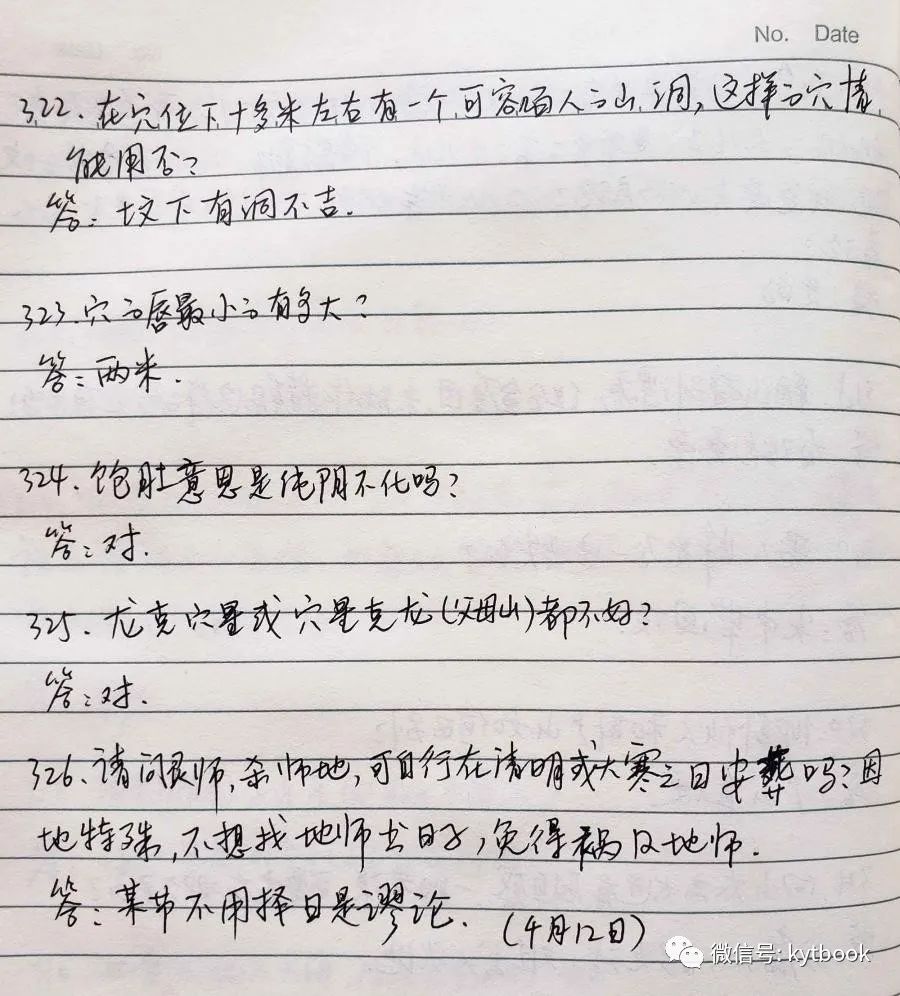 No. Date
322. 在穴位下十多米左右有一个可容两人的山洞,这样的穴情
能用否?
答:坟下有洞不吉.
323. 穴的唇最小的有多大?
答:两米.
324. 饱肚意思是纯阴不化吗?
答:对.
325. 龙克穴星或穴星克龙(父母山)都不好?
答:对.
326. 请问良师,杀师地,可自行在清明或大寒之日安葬吗?因
地特殊,不想找地师出日子,免得祸及地师.
答:某节不用择日是谬论. (4月12日)
微信号: kytbook